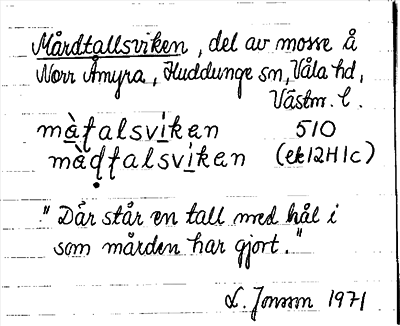 Mårdtallsviken, del av mosse å
Norr Åmyra, Huddunge sn, Våla hd,
Västm. l.
màṭalsvi̱kan 510
màḍṭalsvi̱kan (ek12H1c)
"Där står en tall med hål i
som mården har gjort."
L. Jonson 1971